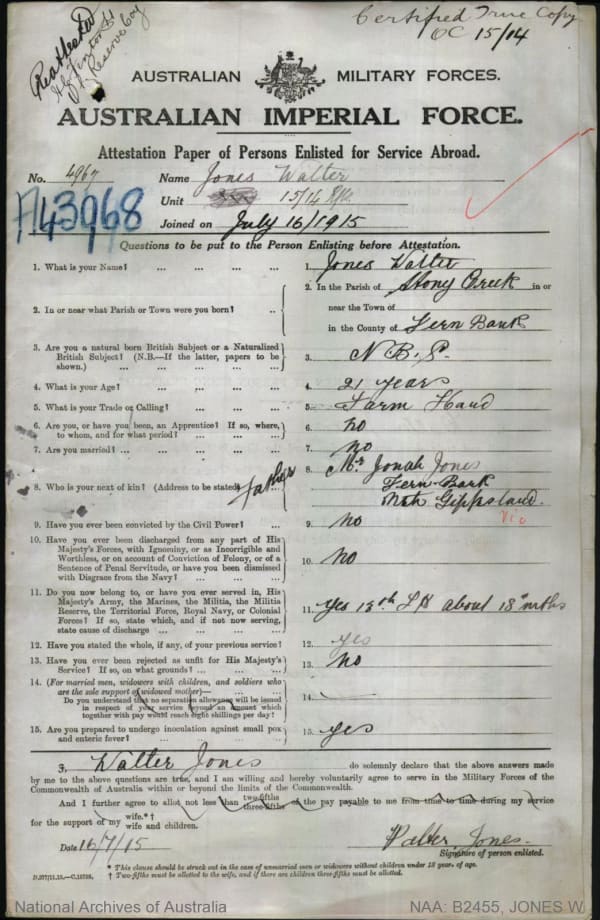 Certified True Copy
OC 15/14
Reattested
Reserve Coy
AUSTRALIAN MILITARY FORCES.
AUSTRALIAN IMPERIAL FORCE.
Attestation Paper of Persons Enlisted for Service Abroad.
No. 4967 Name Jones Walter
Unit 15/14
A43968
Joined on July 16/1915
Questions to be put to the Person Enlisting before Attestation.
1. What is your Name? ... ... ... ... 1. Jones Walter
2. In or near what Parish or Town were you born? ... 2. In the Parish of Stony Creek in or
near the Town of
in the County of Fern Bank
3. Are you a natural born British Subject or a Naturalized
British Subject? (N.B.—If the latter, papers to be
shown.) ... ... ... ... 3. N.B.S.
4. What is your Age? ... ... ... ... 4. 21 years
5. What is your Trade or Calling? ... ... ... 5. Farm Hand
6. Are you, or have you been, an Apprentice? If so, where,
to whom, and for what period? ... ... ... 6. no
7. Are you married? ... ... ... ... 7. no
8. Who is your next of kin? (Address to be stated) father 8. Mr Jonah Jones
Fern Bank
Nth Gippsland.
Vic
9. Have you ever been convicted by the Civil Power? ... 9. no
10. Have you ever been discharged from any part of His
Majesty's Forces, with Ignominy, or as Incorrigible and
Worthless, or on account of Conviction of Felony, or of a
Sentence of Penal Servitude, or have you been dismissed
with Disgrace from the Navy? ... ... ... 10. no
11. Do you now belong to, or have you ever served in, His
Majesty's Army, the Marines, the Militia, the Militia
Reserve, the Territorial Force, Royal Navy, or Colonial
Forces? If so, state which, and if not now serving,
state cause of discharge ... ... ... 11. yes 13th LH about 18 mths
12. Have you stated the whole, if any, of your previous service? 12. yes
13. Have you ever been rejected as unfit for His Majesty's
Service? If so, on what grounds? ... ... ... 13. no
14. (For married men, widowers with children, and soldiers who
are the sole support of widowed mother)—
Do you understand that no separation allowance will be issued
in respect of your service beyond an amount which
together with pay would reach eight shillings per day? 14.
15. Are you prepared to undergo inoculation against small pox
and enteric fever? ... ... ... ... 15. yes
I, Walter Jones do solemnly declare that the above answers made
by me to the above questions are true, and I am willing and hereby voluntarily agree to serve in the Military Forces of the
Commonwealth of Australia within or beyond the limits of the Commonwealth.
And I further agree to allot not less than two-fifths three-fifths of the pay payable to me from time to time during my service
for the support of my wife.*†
wife and children.
Date 16/7/15 Walter Jones.
Signature of person enlisted.
* This clause should be struck out in the case of unmarried men or widowers without children under 18 years of age.
† Two-fifths must be allotted to the wife, and if there are children three-fifths must be allotted.
National Archives of Australia NAA: B2455, JONES W